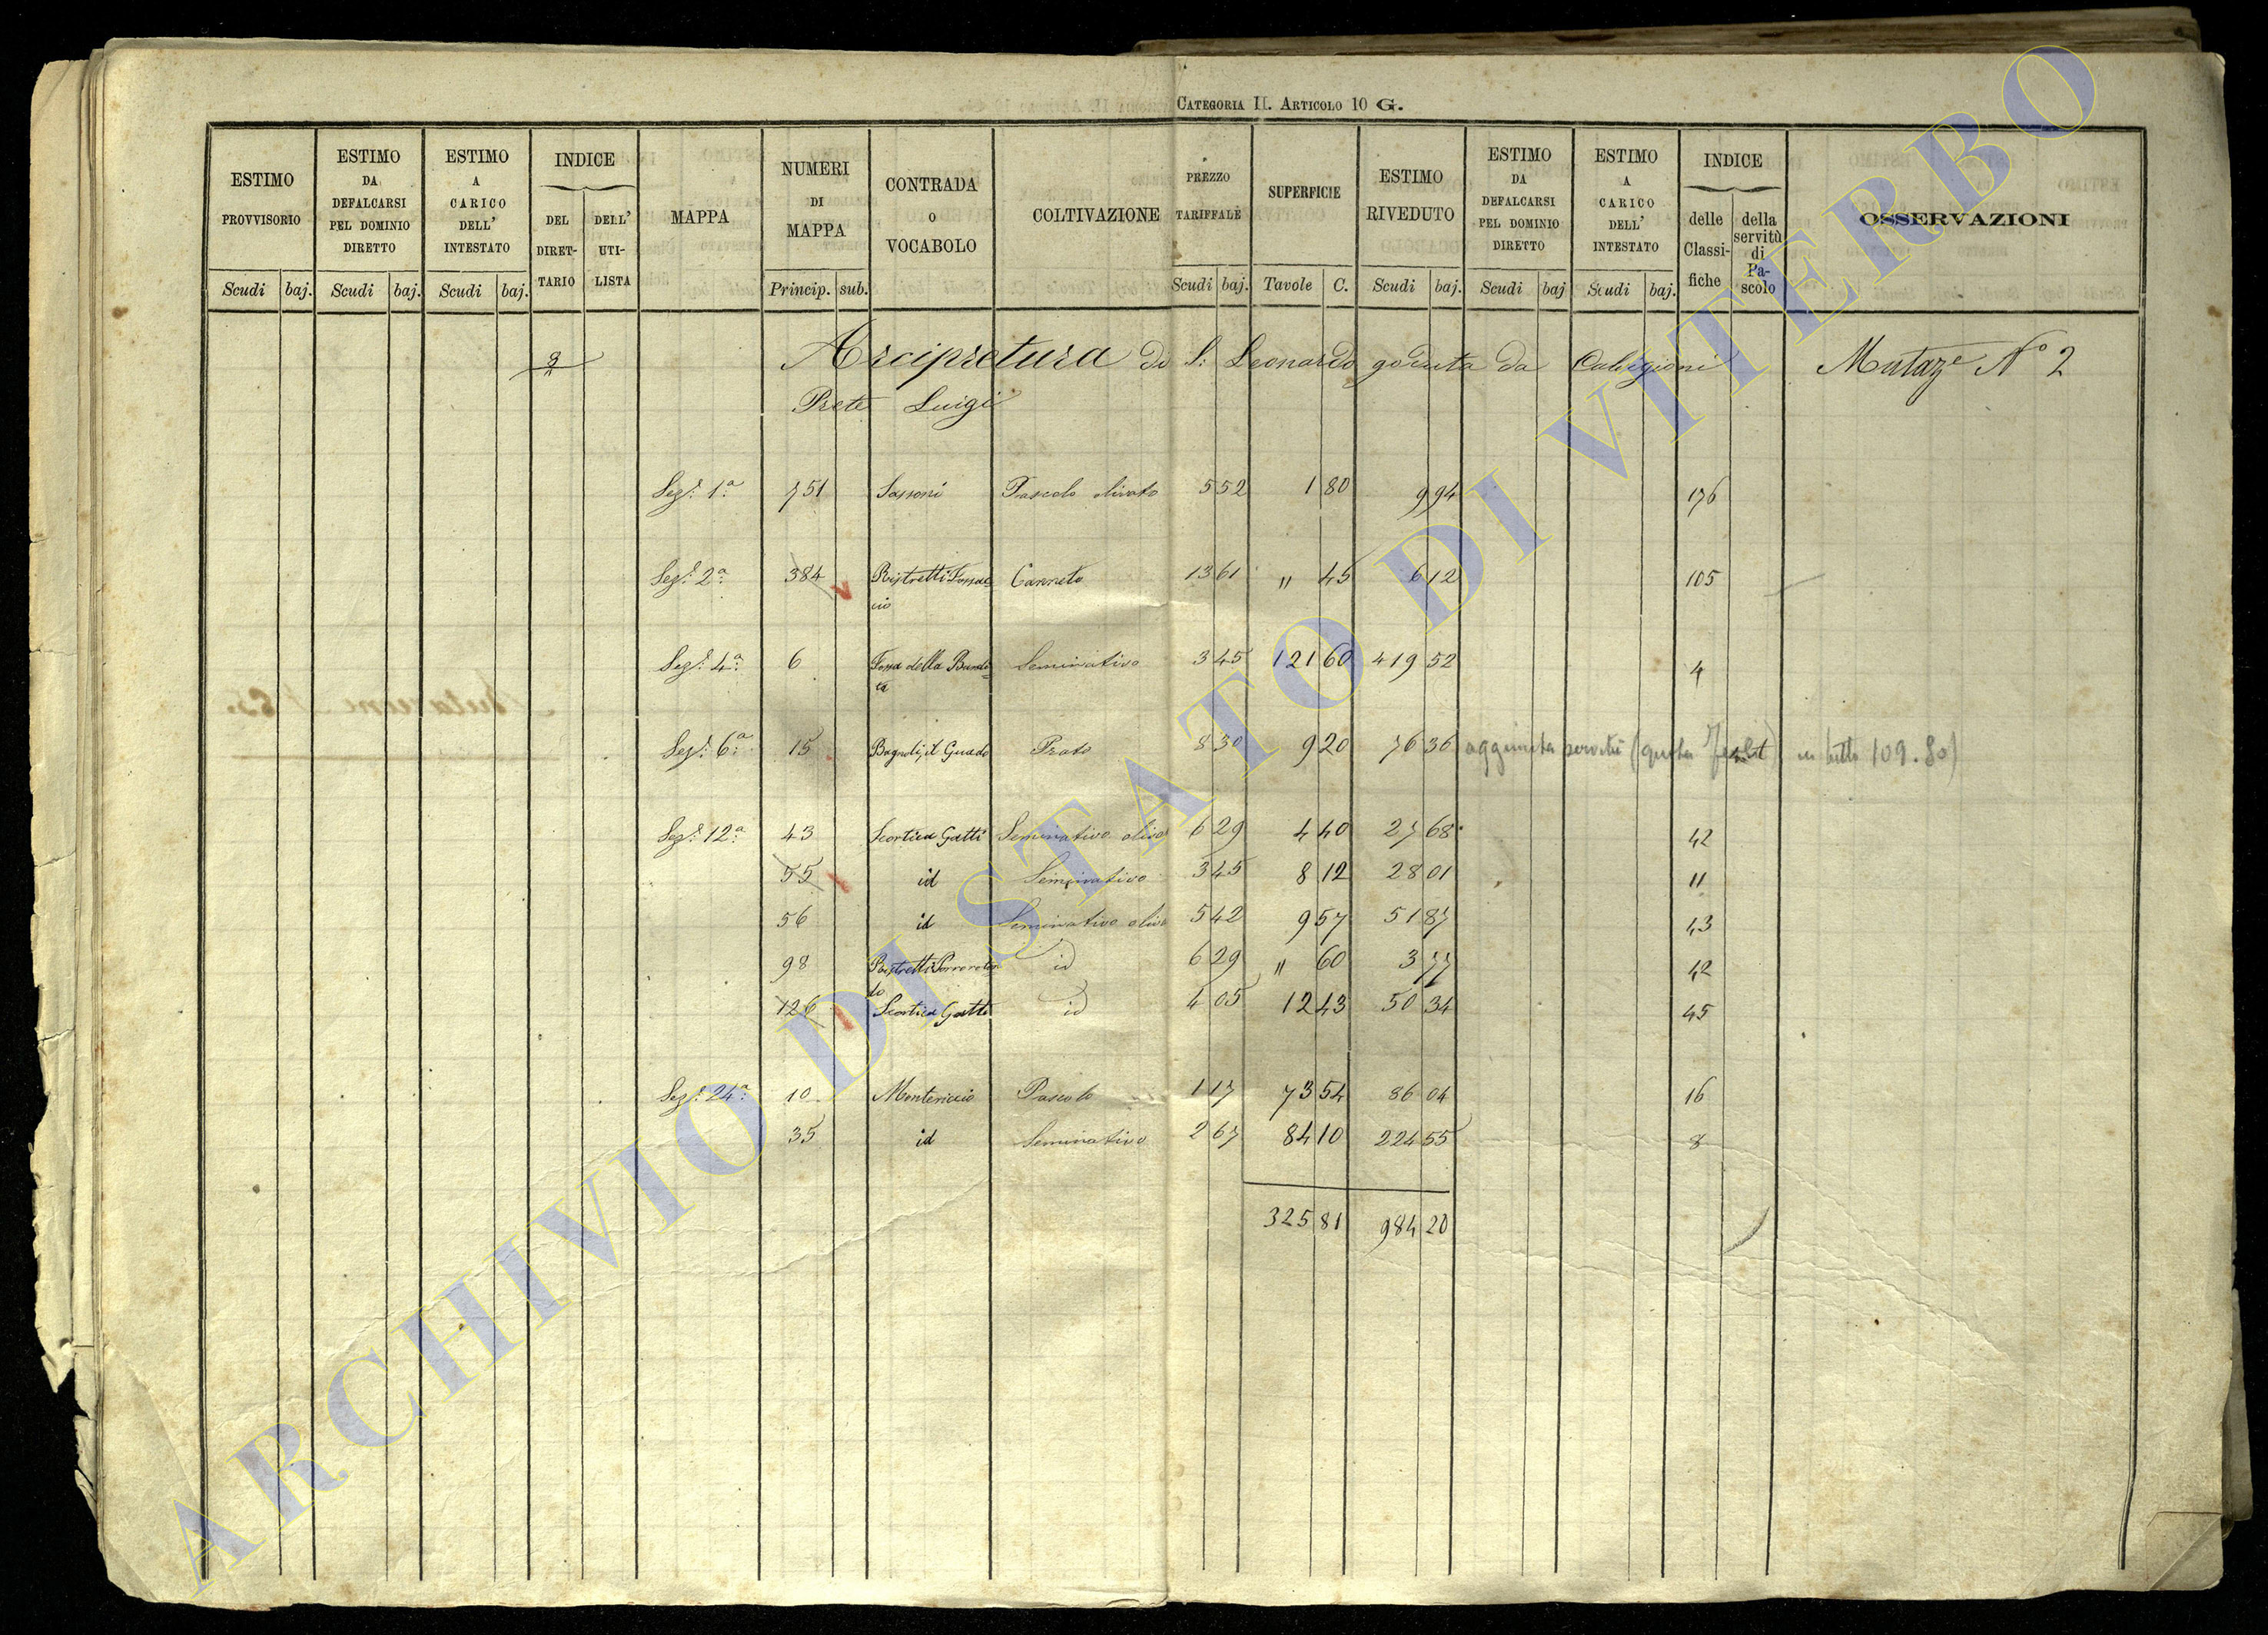 CATEGORIA II. ARTICOLO 10 G.
ESTIMO PROVVISORIO | ESTIMO DA DEFALCARSI PEL DOMINIO DIRETTO | ESTIMO A CARICO DELL' INTESTATO | INDICE DEL DIRETTARIO | DELL' UTILISTA | MAPPA | NUMERI DI MAPPA | CONTRADA O VOCABOLO | COLTIVAZIONE | PREZZO TARIFFALE | SUPERFICIE | ESTIMO RIVEDUTO | ESTIMO DA DEFALCARSI PEL DOMINIO DIRETTO | ESTIMO A CARICO DELL' INTESTATO | INDICE delle Classifiche | della servitù di Pascolo | OSSERVAZIONI
Scudi baj. Scudi baj. Scudi baj. Princip. sub. Scudi baj. Tavole C. Scudi baj. Scudi baj Scudi baj.
Arcipretura di S. Leonardo goduta da Mutaze No 2
Prete Luigi
Sez.e 1a 751 Sassoni Pascolo olivato 5 52 1 80 9 94 176
Sez.e 2a 384 Ristretti Fossac- Canneto 13 61 " 45 6 12 105
cio
Sez.e 4a 6 Fossa della Bandi- Seminativo 3 45 121 60 419 52 4
ta
Sez.e 6a 15 Bagnoli, il Guado Prato 8 30 9 20 76 36 aggiunta servitù in tutto 109.80)
Sez.e 12a 43 Scortica Gatti Seminativo olivo 6 29 4 40 27 68 42
55 id Seminativo 3 45 8 12 28 01 11
56 id Seminativo olivo 5 42 9 57 51 87 43
98 Ristretti id 6 29 " 60 3 77 42
126 Scortica Gatti id 4 05 12 43 50 34 45
Sez.e 24a 10 Montericcio Pascolo 1 17 73 54 86 04 16
35 id Seminativo 2 67 84 10 224 55 8
325 81 984 20
ARCHIVIO DI STATO DI VITERBO